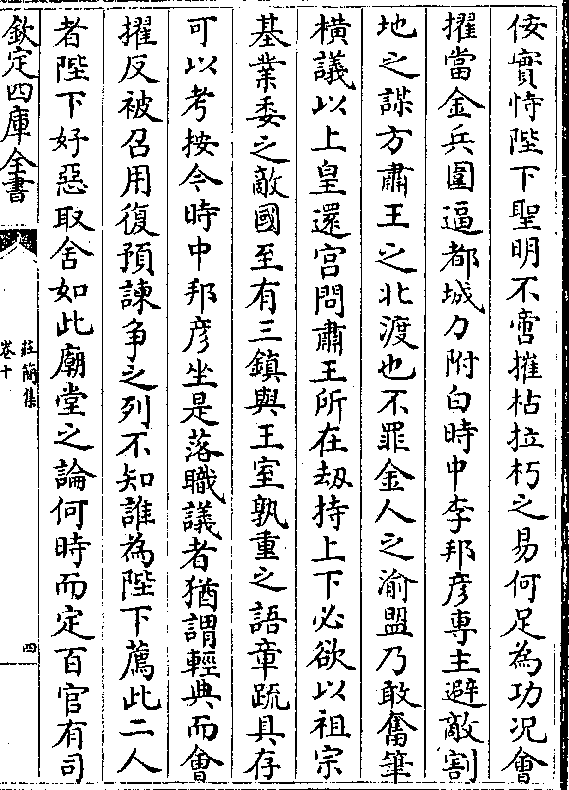 佞實恃陛下聖明不啻摧枯拉朽之易何足為功况㑹
擢當金兵圍逼都城力附白時中李邦彦専主避敵割
地之謀方肅王之北渡也不罪金人之渝盟乃敢奮筆
横議以上皇還宫問肅王所在刼持上下必欲以祖宗
基業委之敵國至有三鎮與王室孰重之語章疏具存
可以考按今時中邦彦坐是落職議者猶謂輕典而㑹
擢反被召用復預諫争之列不知誰為陛下薦此二人
者陛下好惡取舍如此廟堂之論何時而定百官有司
欽定四庫全書
莊簡集
卷十
四